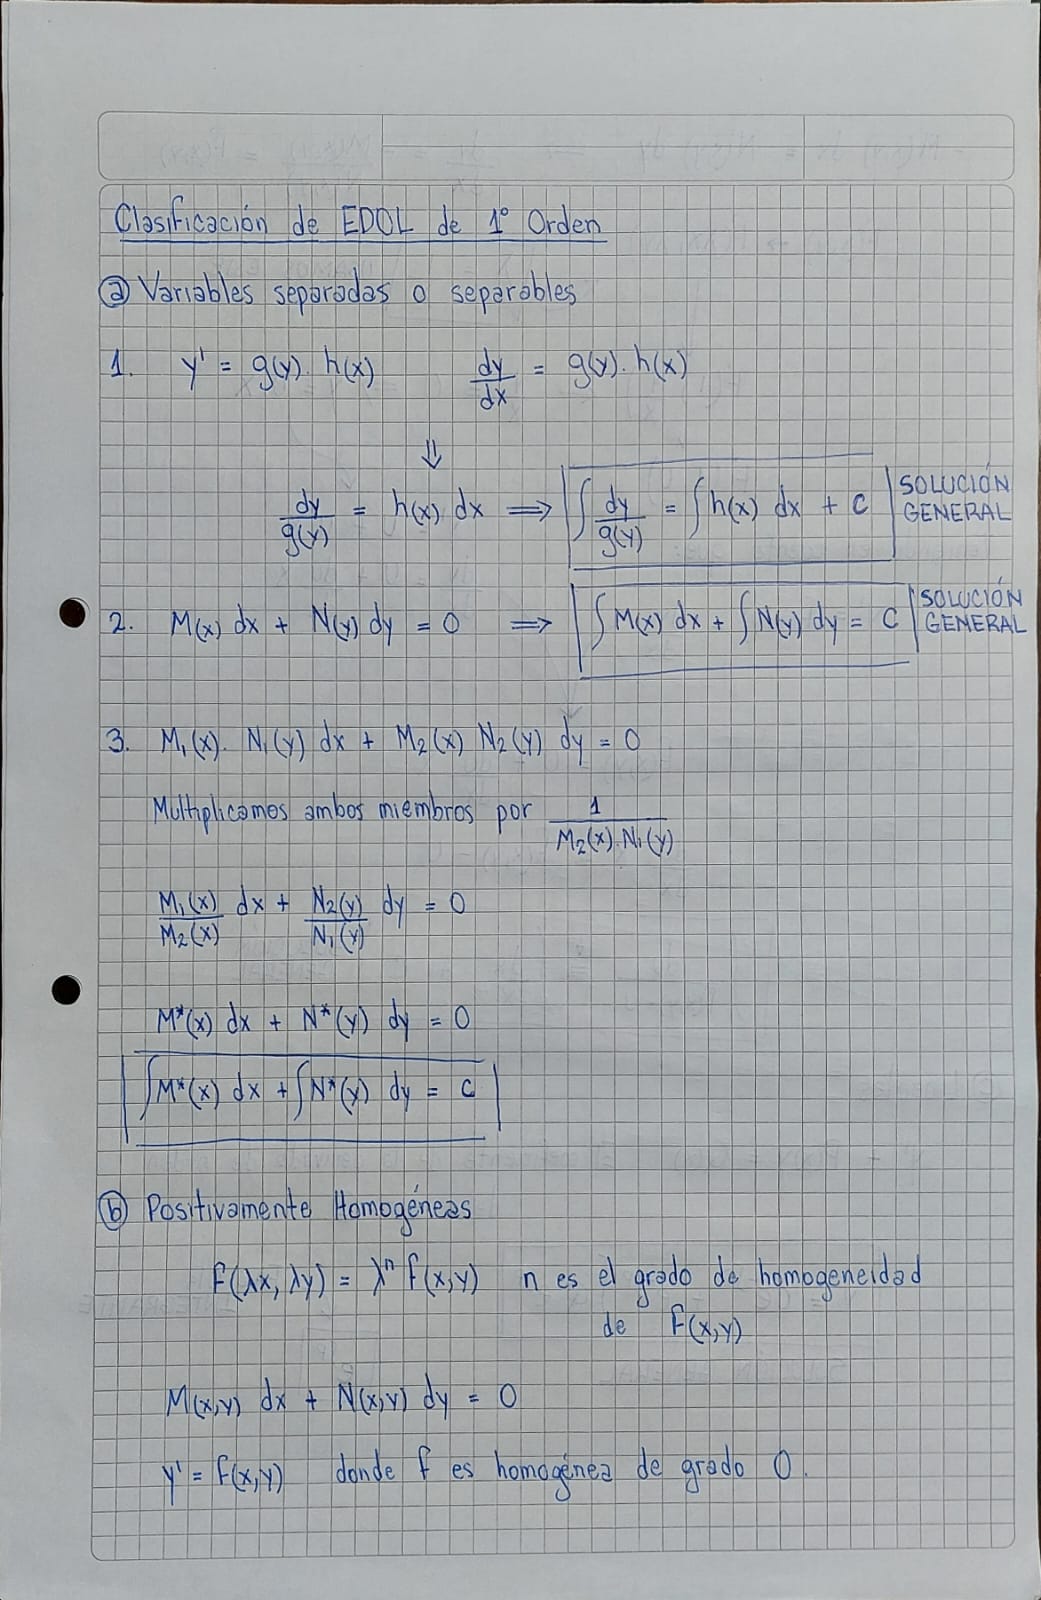 Clasificación de EDOL de 1° Orden
ⓐ Variables separadas o separables
1. y' = g(y). h(x) dy/dx = g(y). h(x)
⇓
dy/g(y) = h(x) dx ⟹ ∫ dy/g(y) = ∫ h(x) dx + C SOLUCIÓN GENERAL
2. M(x) dx + N(y) dy = 0 ⟹ ∫ M(x) dx + ∫ N(y) dy = C SOLUCIÓN GENERAL
3. M₁(x). N₁(y) dx + M₂(x) N₂(y) dy = 0
Multiplicamos ambos miembros por 1/M₂(x).N₁(y)
M₁(x)/M₂(x) dx + N₂(y)/N₁(y) dy = 0
M*(x) dx + N*(y) dy = 0
∫M*(x) dx + ∫N*(y) dy = C
ⓑ Positivamente Homogéneas
F(λx, λy) = λⁿ f(x,y) n es el grado de homogeneidad
de F(x,y)
M(x,y) dx + N(x,y) dy = 0
y' = f(x,y) donde f es homogénea de grado 0.